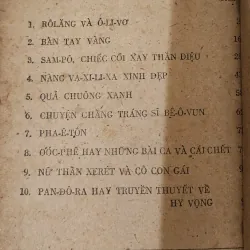 1. RÔLĂNG VÀ Ô-LI-VƠ
2. BÀN TAY VÀNG
3. SAM-PÔ, CHIẾC CỐI XAY THẦN DIỆU
4. NÀNG VA-XI-LI-XA XINH ĐẸP
5. QUẢ CHUÔNG XANH
6. CHUYỆN CHÀNG TRÁNG SĨ BÊ-Ô-VUN
7. PHA-Ê-TÔN
8. OÓC-PHÊ HAY NHỮNG BÀI CA VÀ CÁI CHẾT
9. NỮ THẦN XERÉT VÀ CÔ CON GÁI
10. PAN-ĐÔ-RA HAY TRUYỀN THUYẾT VỀ
HY VỌNG